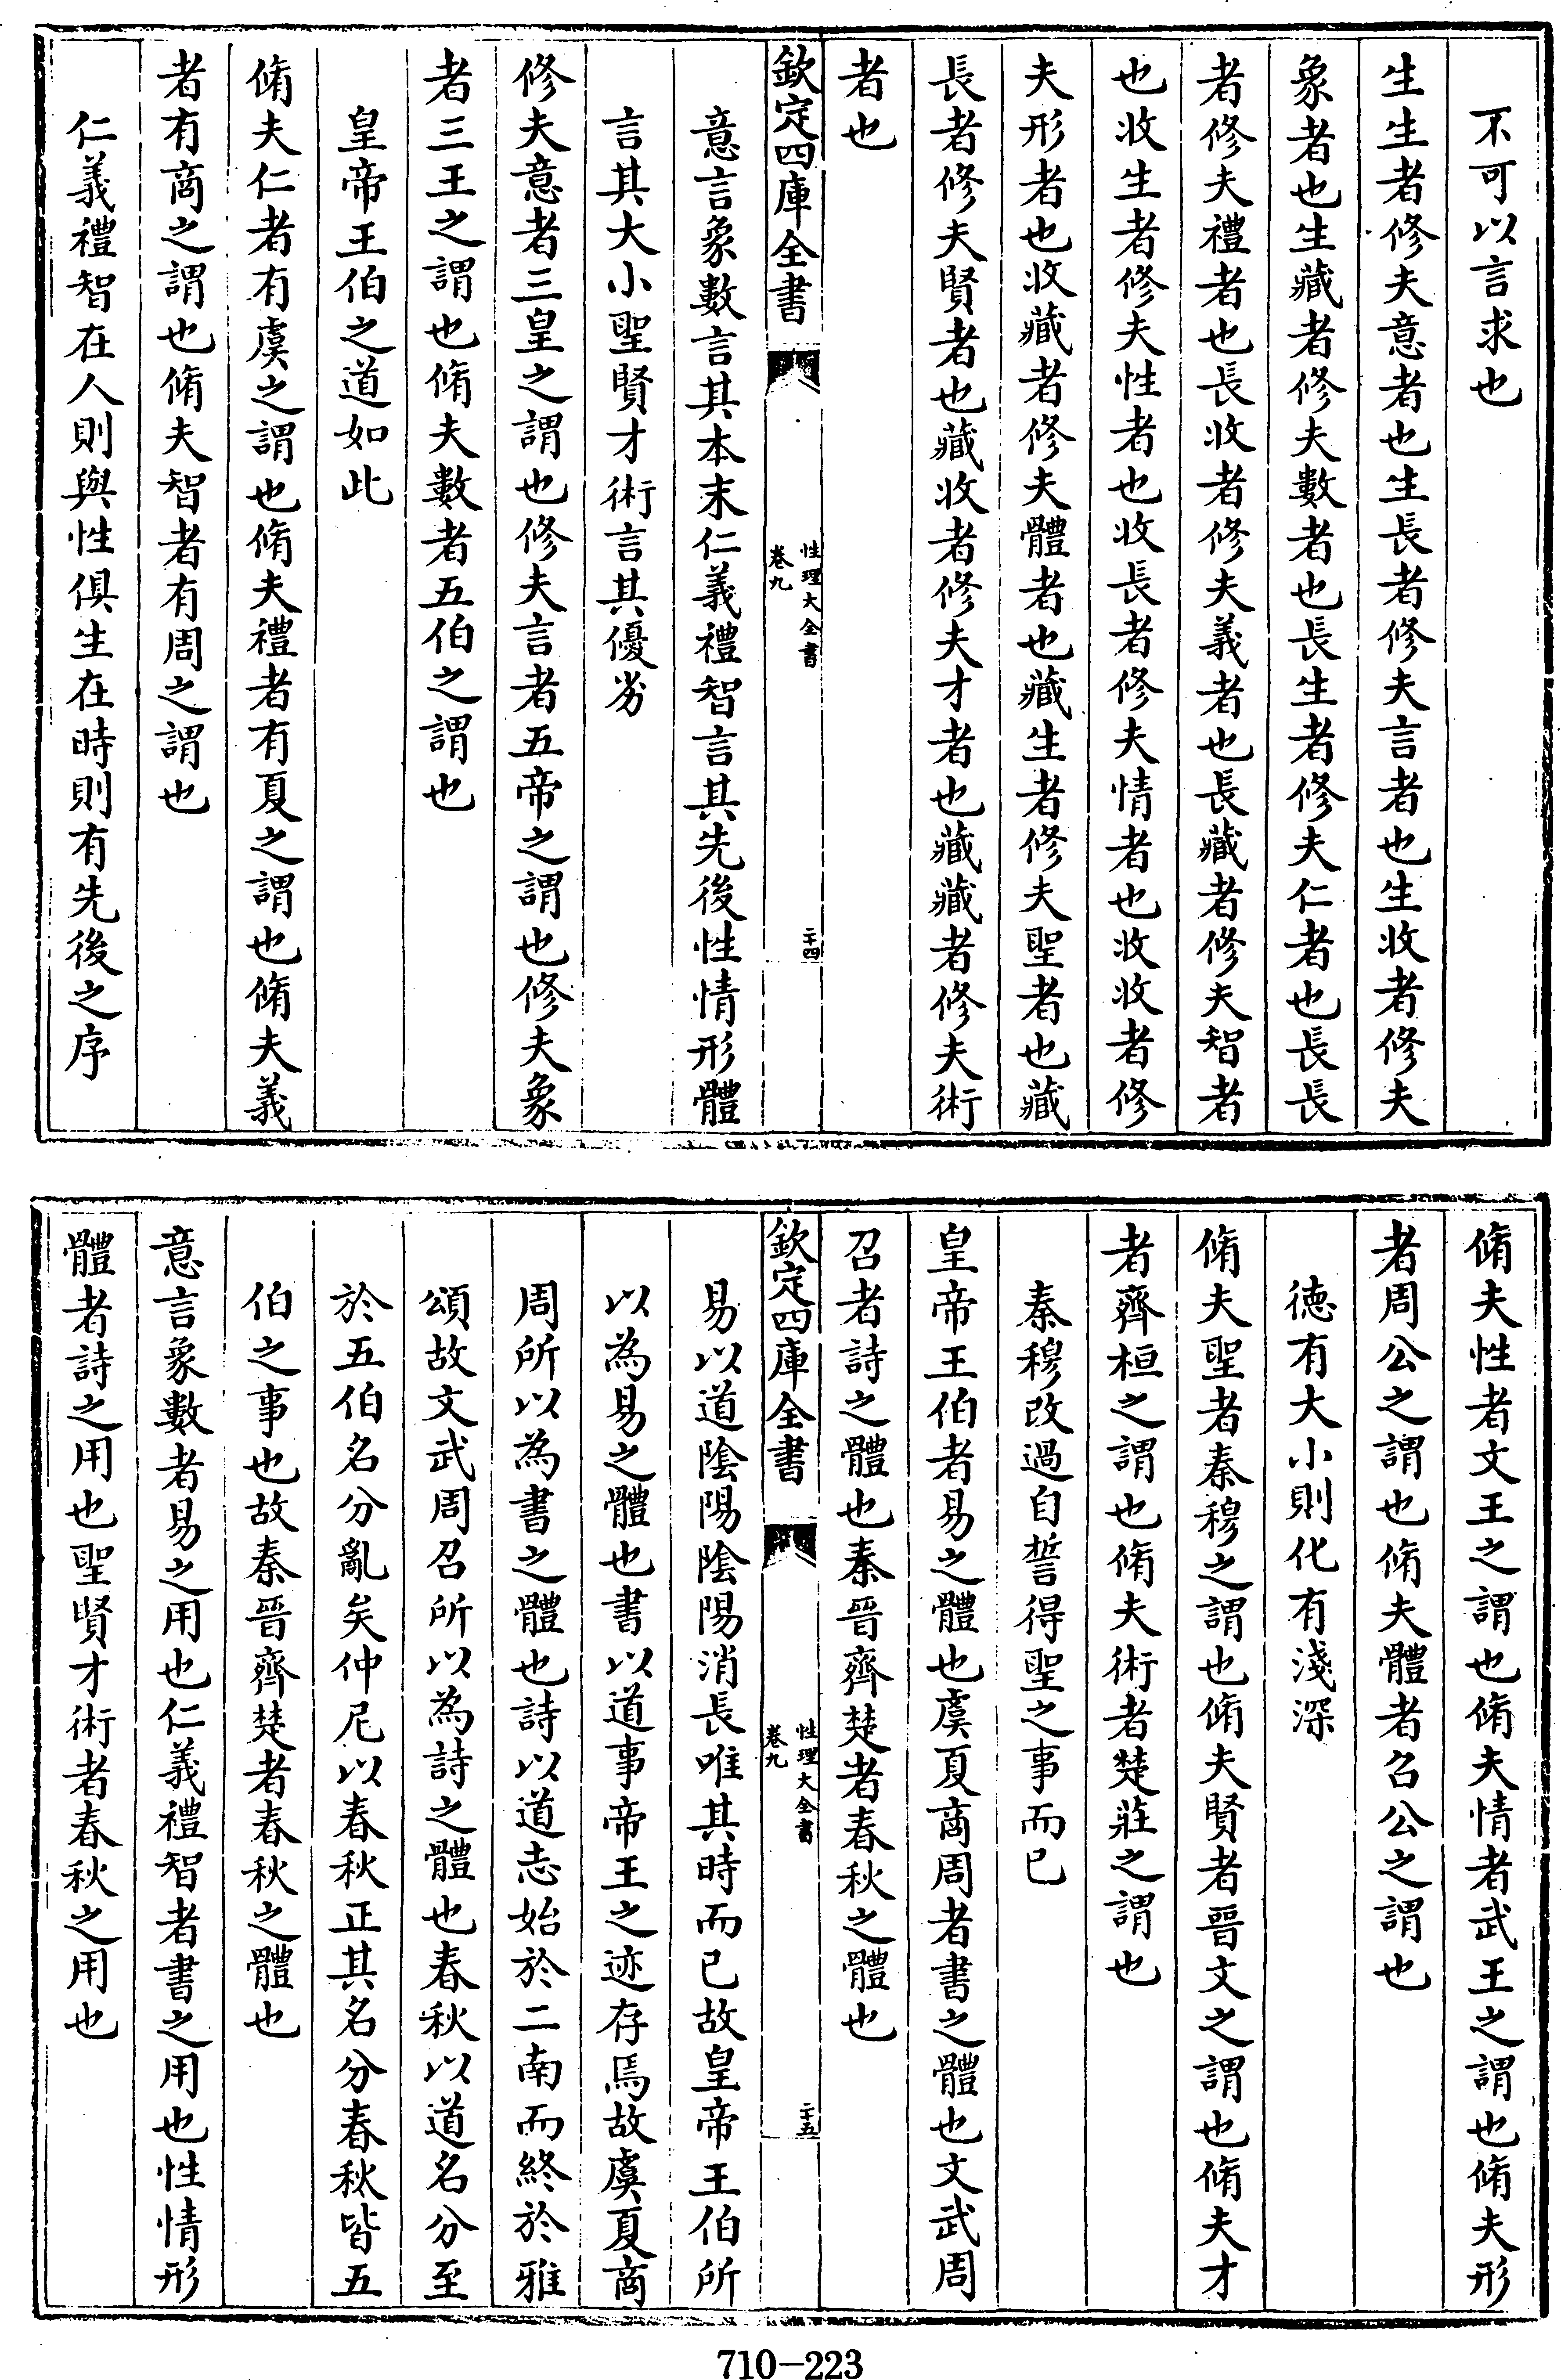 不可以言求也
生生者修夫意者也生長者修夫言者也生收者修夫
象者也生藏者修夫數者也長生者修夫仁者也長長
者修夫禮者也長收者修夫義者也長藏者修夫智者
也收生者修夫性者也收長者修夫情者也收收者修
夫形者也收藏者修夫體者也藏生者修夫聖者也藏
長者修夫賢者也藏收者修夫才者也藏藏者修夫術
者也
欽定四庫全書
性理大全書
卷九
二十四
意言象數言其本末仁義禮智言其先後性情形體
言其大小聖賢才術言其優劣
修夫意者三皇之謂也修夫言者五帝之謂也修夫象
者三王之謂也脩夫數者五伯之謂也
皇帝王伯之道如此
脩夫仁者有虞之謂也脩夫禮者有夏之謂也脩夫義
者有商之謂也脩夫智者有周之謂也
仁義禮智在人則與性俱生在時則有先後之序
脩夫性者文王之謂也脩夫情者武王之謂也脩夫形
者周公之謂也脩夫體者召公之謂也
德有大小則化有淺深
脩夫聖者秦穆之謂也脩夫賢者晉文之謂也脩夫才
者齊桓之謂也脩夫術者楚莊之謂也
秦穆改過自誓得聖之事而已
皇帝王伯者易之體也虞夏商周者書之體也文武周
召者詩之體也秦晉齊楚者春秋之體也
欽定四庫全書
性理大全書
卷九
二十五
易以道陰陽陰陽消長唯其時而已故皇帝王伯所
以為易之體也書以道事帝王之迹存焉故虞夏商
周所以為書之體也詩以道志始於二南而終於雅
頌故文武周召所以為詩之體也春秋以道名分至
於五伯名分亂矣仲尼以春秋正其名分春秋皆五
伯之事也故秦晉齊楚者春秋之體也
意言象數者易之用也仁義禮智者書之用也性情形
體者詩之用也聖賢才術者春秋之用也
710-223